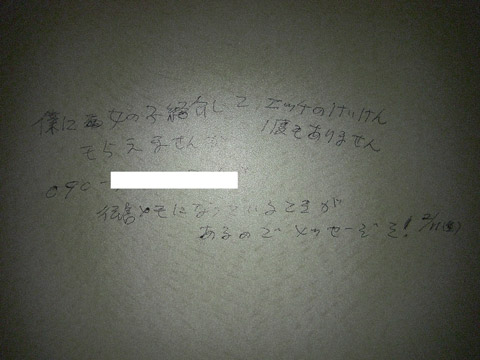 僕に女の子紹介して
もらえませんか
エッチのけいけん
1度もありません
090-
になっているときが
あるのでメッセージを!
2/11(金)